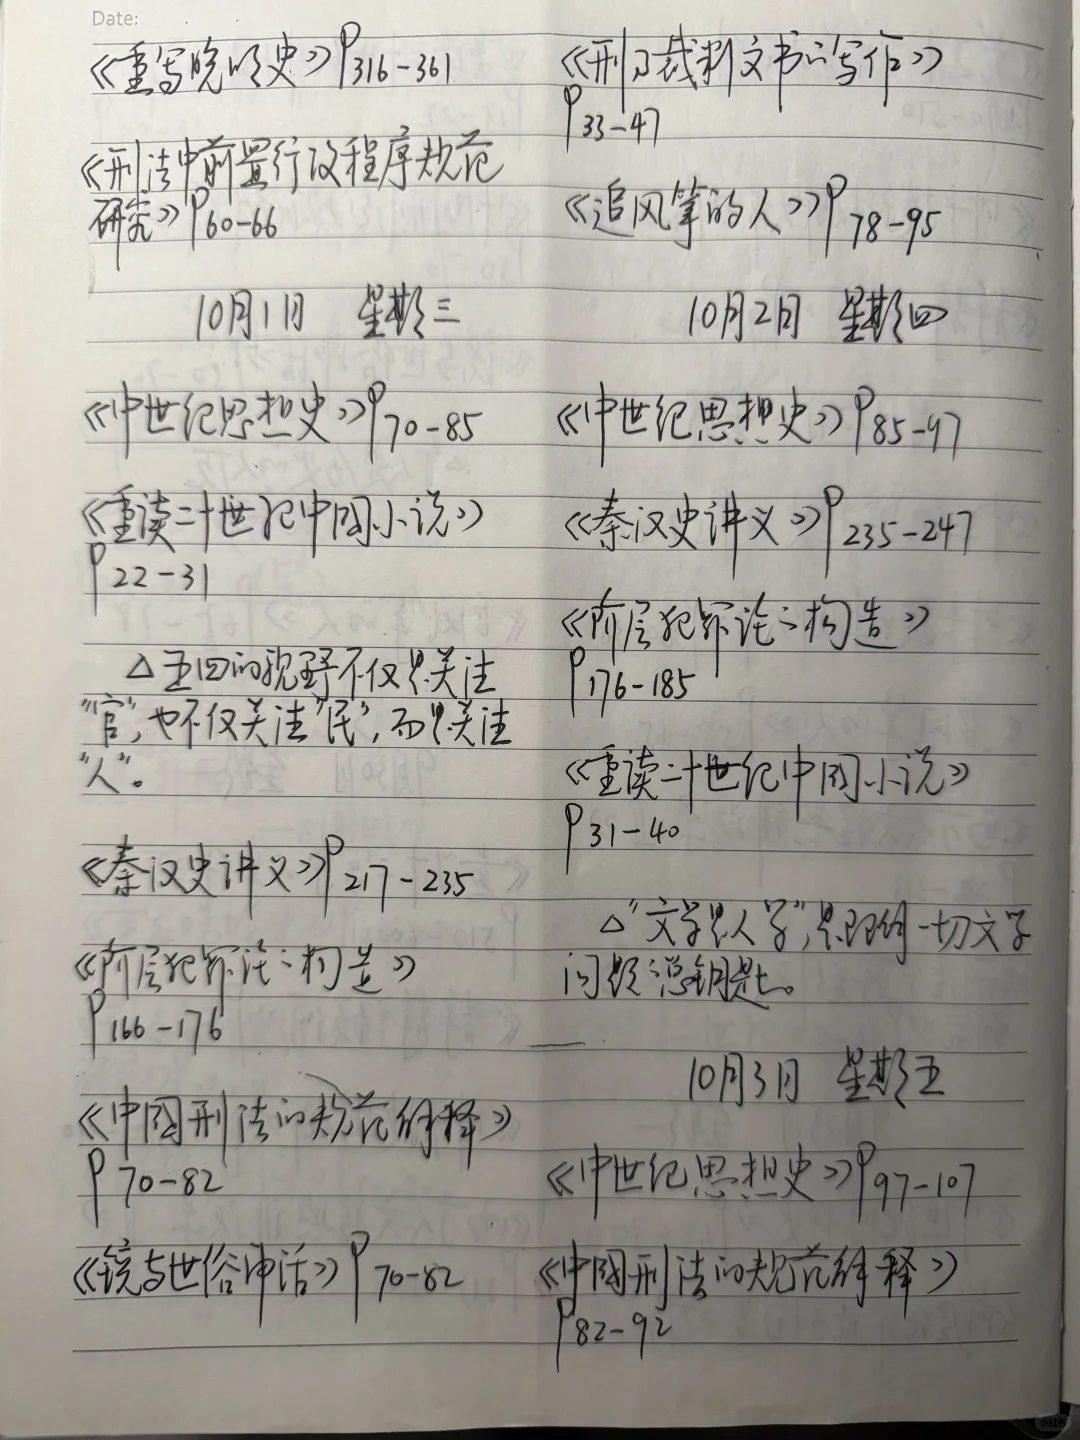 Date:
《重写晚明史》P316-361
《刑法中前置行政程序规范
研究》P60-66
10月1日 星期三
《中世纪思想史》P70-85
《重读二十世纪中国小说》
P22-31
△五四的视野不仅是关注
“官”,也不仅关注“民”,而是关注
“人”。
《秦汉史讲义》P217-235
《阶层犯罪论之构造》
P166-176
《中国刑法的规范解释》
P70-82
《镜与世俗神话》P70-82
《刑事裁判文书的写作》
P33-47
《追风筝的人》P78-95
10月2日 星期四
《中世纪思想史》P85-97
《秦汉史讲义》P235-247
《阶层犯罪论之构造》
P176-185
《重读二十世纪中国小说》
P31-40
△“文学是人学”,是理解一切文学
问题总钥匙。
10月3日 星期五
《中世纪思想史》P97-107
《中国刑法的规范解释》
P82-92